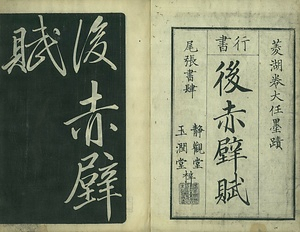 菱湖巻大任墨蹟
行書
後赤壁賦
尾張書肆
静觀堂
玉潤堂
梓
後赤壁
賦